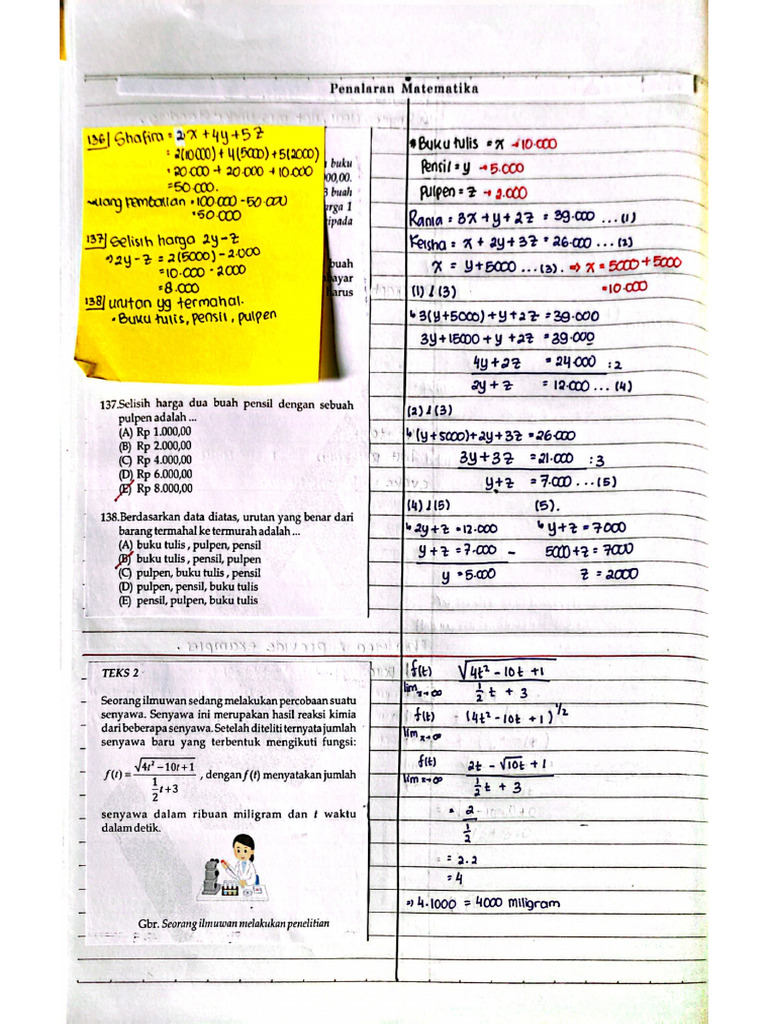 Penalaran Matematika
136/ Shafira = 2x + 4y + 5z
= 2(10000) + 4(5000) + 5(2000)
= 20.000 + 20.000 + 10.000
= 50.000.
uang kembalian = 100.000 - 50.000
= 50.000
137/ Selisih harga 2y - z
⇒ 2y - z = 2(5000) - 2.000
= 10.000 - 2000
= 8.000
138/ urutan yg termahal.
• Buku tulis, pensil, pulpen
buku
00,00.
3 buah
arga 1
ipada
buah
ayar
harus
137.Selisih harga dua buah pensil dengan sebuah
pulpen adalah ...
(A) Rp 1.000,00
(B) Rp 2.000,00
(C) Rp 4.000,00
(D) Rp 6.000,00
(E) Rp 8.000,00
138.Berdasarkan data diatas, urutan yang benar dari
barang termahal ke termurah adalah ...
(A) buku tulis , pulpen, pensil
(B) buku tulis , pensil, pulpen
(C) pulpen, buku tulis , pensil
(D) pulpen, pensil, buku tulis
(E) pensil, pulpen, buku tulis
TEKS 2
Seorang ilmuwan sedang melakukan percobaan suatu
senyawa. Senyawa ini merupakan hasil reaksi kimia
dari beberapa senyawa. Setelah diteliti ternyata jumlah
senyawa baru yang terbentuk mengikuti fungsi:
f(t) = √(4t² - 10t + 1) / (1/2 t + 3) , dengan f (t) menyatakan jumlah
senyawa dalam ribuan miligram dan t waktu
dalam detik.
Gbr. Seorang ilmuwan melakukan penelitian
• Buku tulis = x → 10.000
Pensil = y → 5.000
Pulpen = z → 2.000
Rania = 3x + y + 2z = 39.000 ... (1)
Keisha = x + 2y + 3z = 26.000 ... (2)
x = y + 5000 ... (3). ⇒ x = 5000 + 5000
= 10.000
(1) & (3)
↳ 3(y + 5000) + y + 2z = 39.000
3y + 15000 + y + 2z = 39.000
4y + 2z = 24.000 : 2
2y + z = 12.000 ... (4)
(2) & (3)
↳ (y + 5000) + 2y + 3z = 26.000
3y + 3z = 21.000 : 3
y + z = 7.000 ... (5)
(4) & (5) (5).
↳ 2y + z = 12.000 ↳ y + z = 7000
y + z = 7.000 - 5000 + z = 7000
y = 5.000 z = 2000
f(t) √(4t² - 10t + 1)
lim x→∞ 1/2 t + 3
f(t) (4t² - 10t + 1)^1/2
lim x→∞
f(t) 2t - √10t + 1
lim x→∞ 1/2 t + 3
= 2
1/2
= 2.2
= 4
⇒ 4.1000 = 4000 miligram